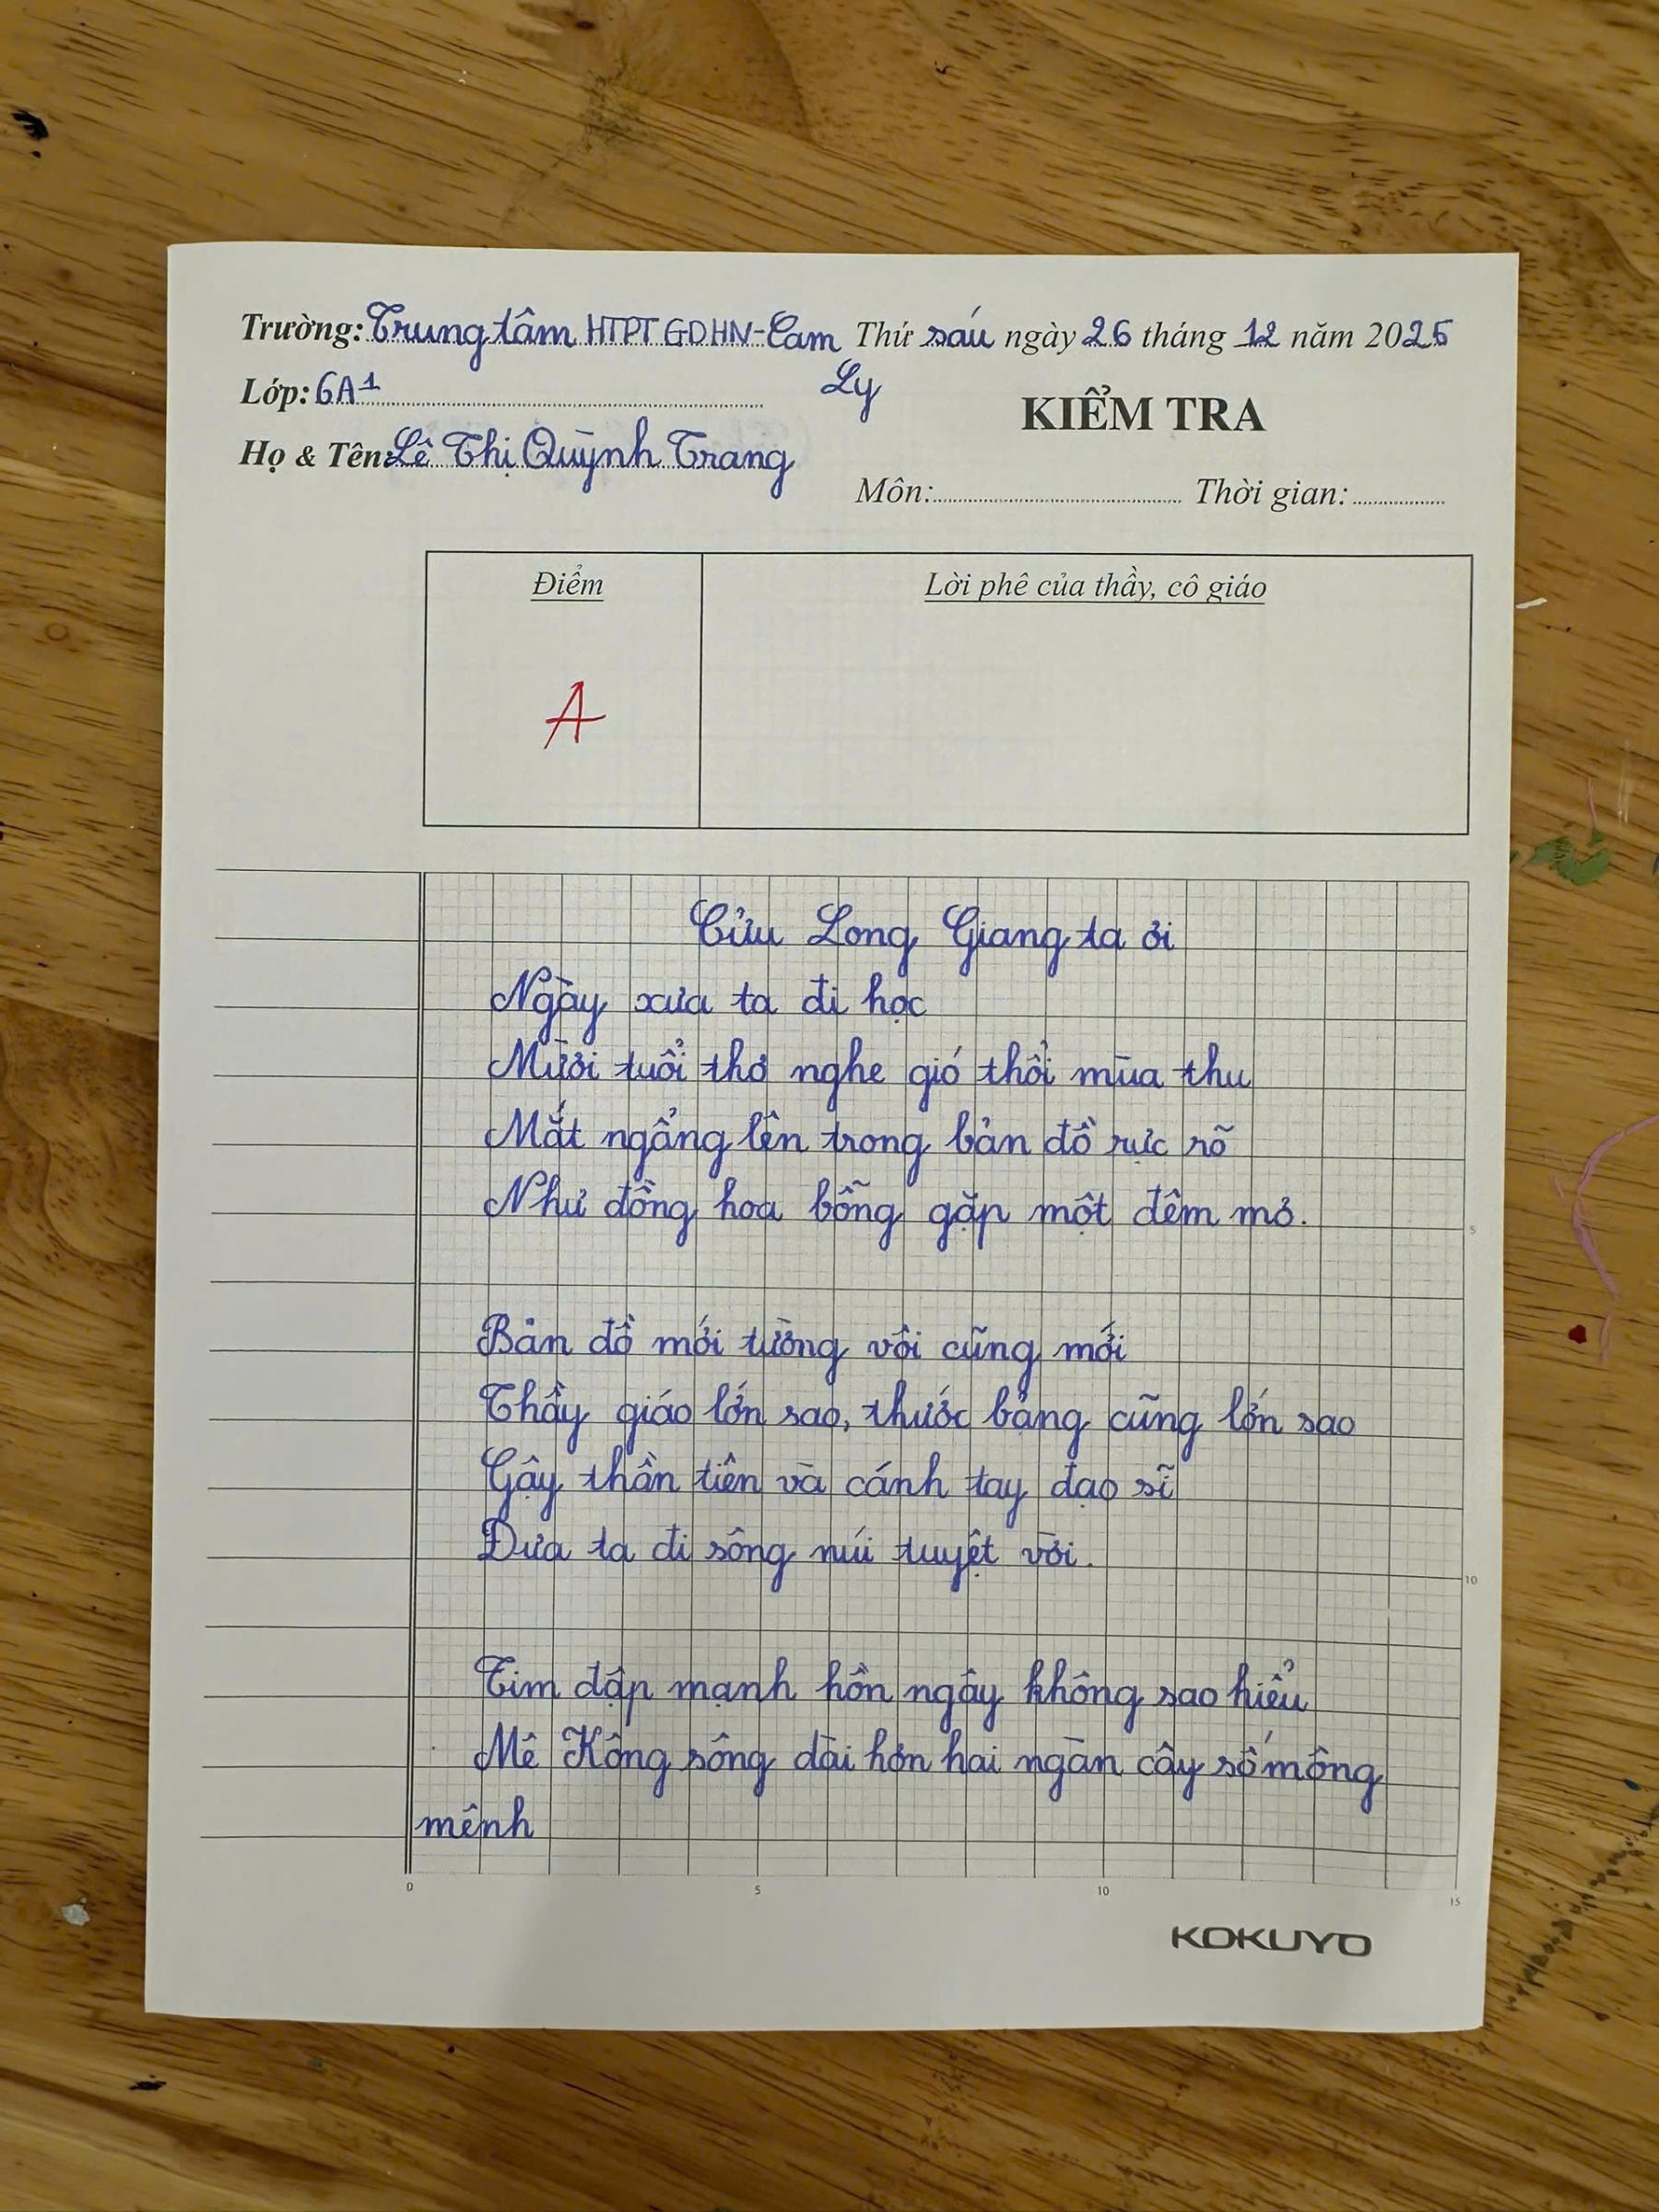 Trường: Trung tâm HTPT GDHN-Cam Thứ sáu ngày 26 tháng 12 năm 2025
Ly
Lớp: 6A1
KIỂM TRA
Họ & Tên: Lê Thị Quỳnh Trang
Môn: Thời gian:
Điểm
Lời phê của thầy, cô giáo
A
Cửu Long Giang ta ơi
Ngày xưa ta đi học
Mười tuổi thơ nghe gió thổi mùa thu
Mắt ngẩng lên trong bản đồ rực rõ
Như đồng hoa bỗng gặp một đêm mơ.
5
Bản đồ mới tường vôi cũng mới
Thầy giáo lớn sao, thước bảng cũng lớn sao
Gậy thần tiên và cánh tay đạo sĩ
Đưa ta đi sông núi tuyệt vời.
10
Tim đập mạnh hồn ngây không sao hiểu
Mê Kông sông dài hơn hai ngàn cây số mông
mênh
0 5 10 15
KOKUYO